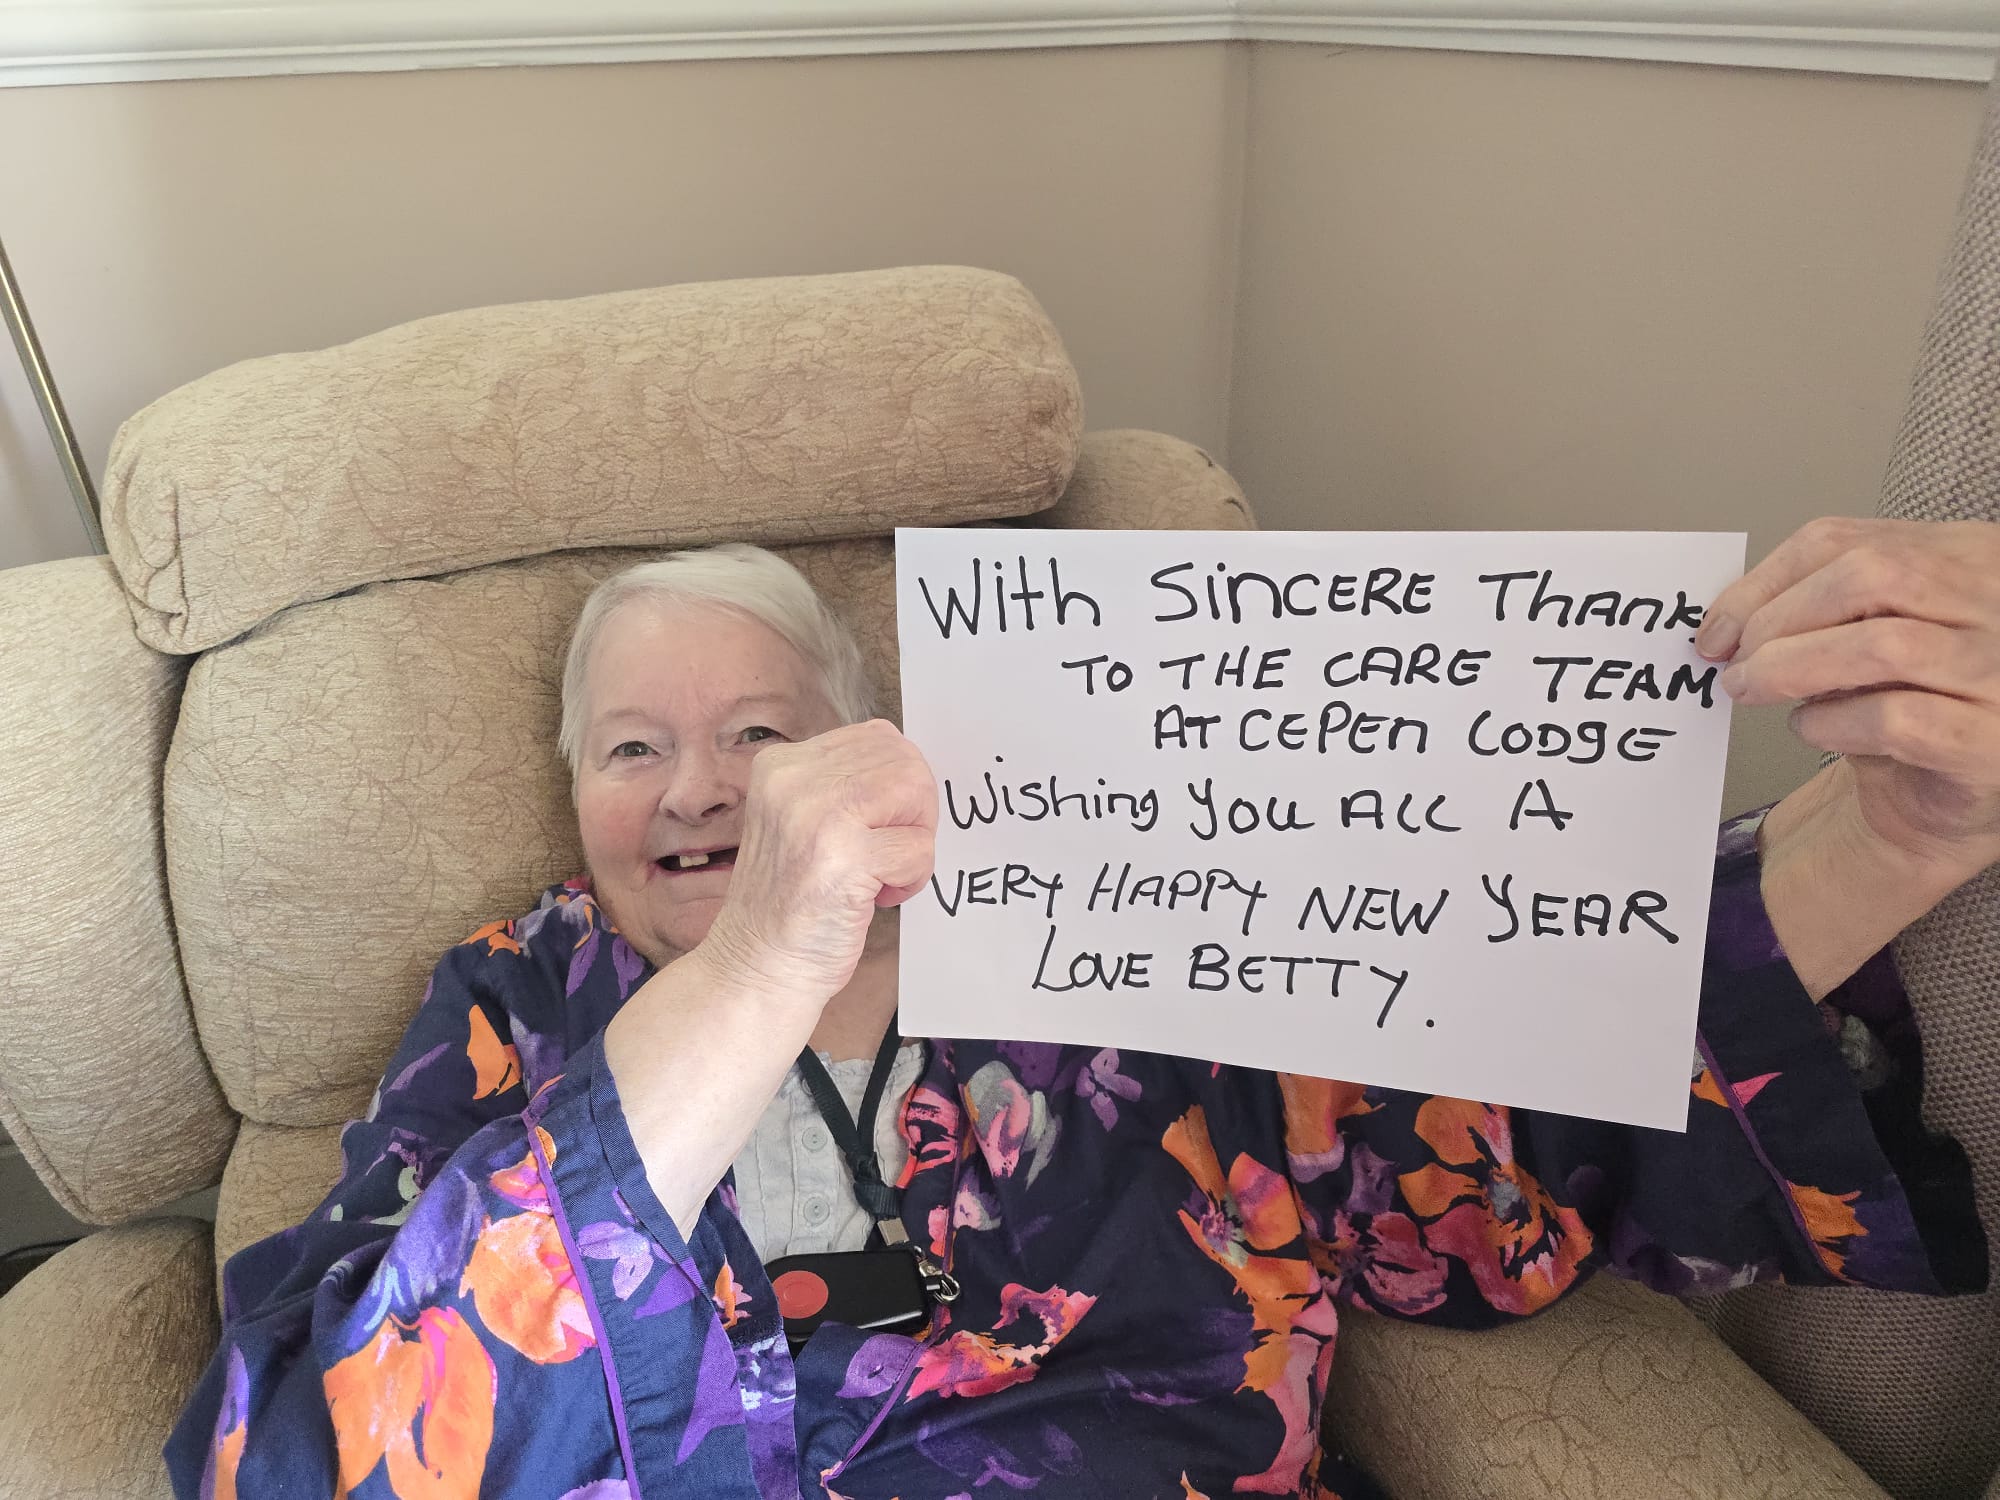 With SinCERE Thanks
TO THE CARE TEAM
AT CEPEN LODGE
Wishing You ALL A
VERY HAPPY NEW YEAR
LOVE BETTY.